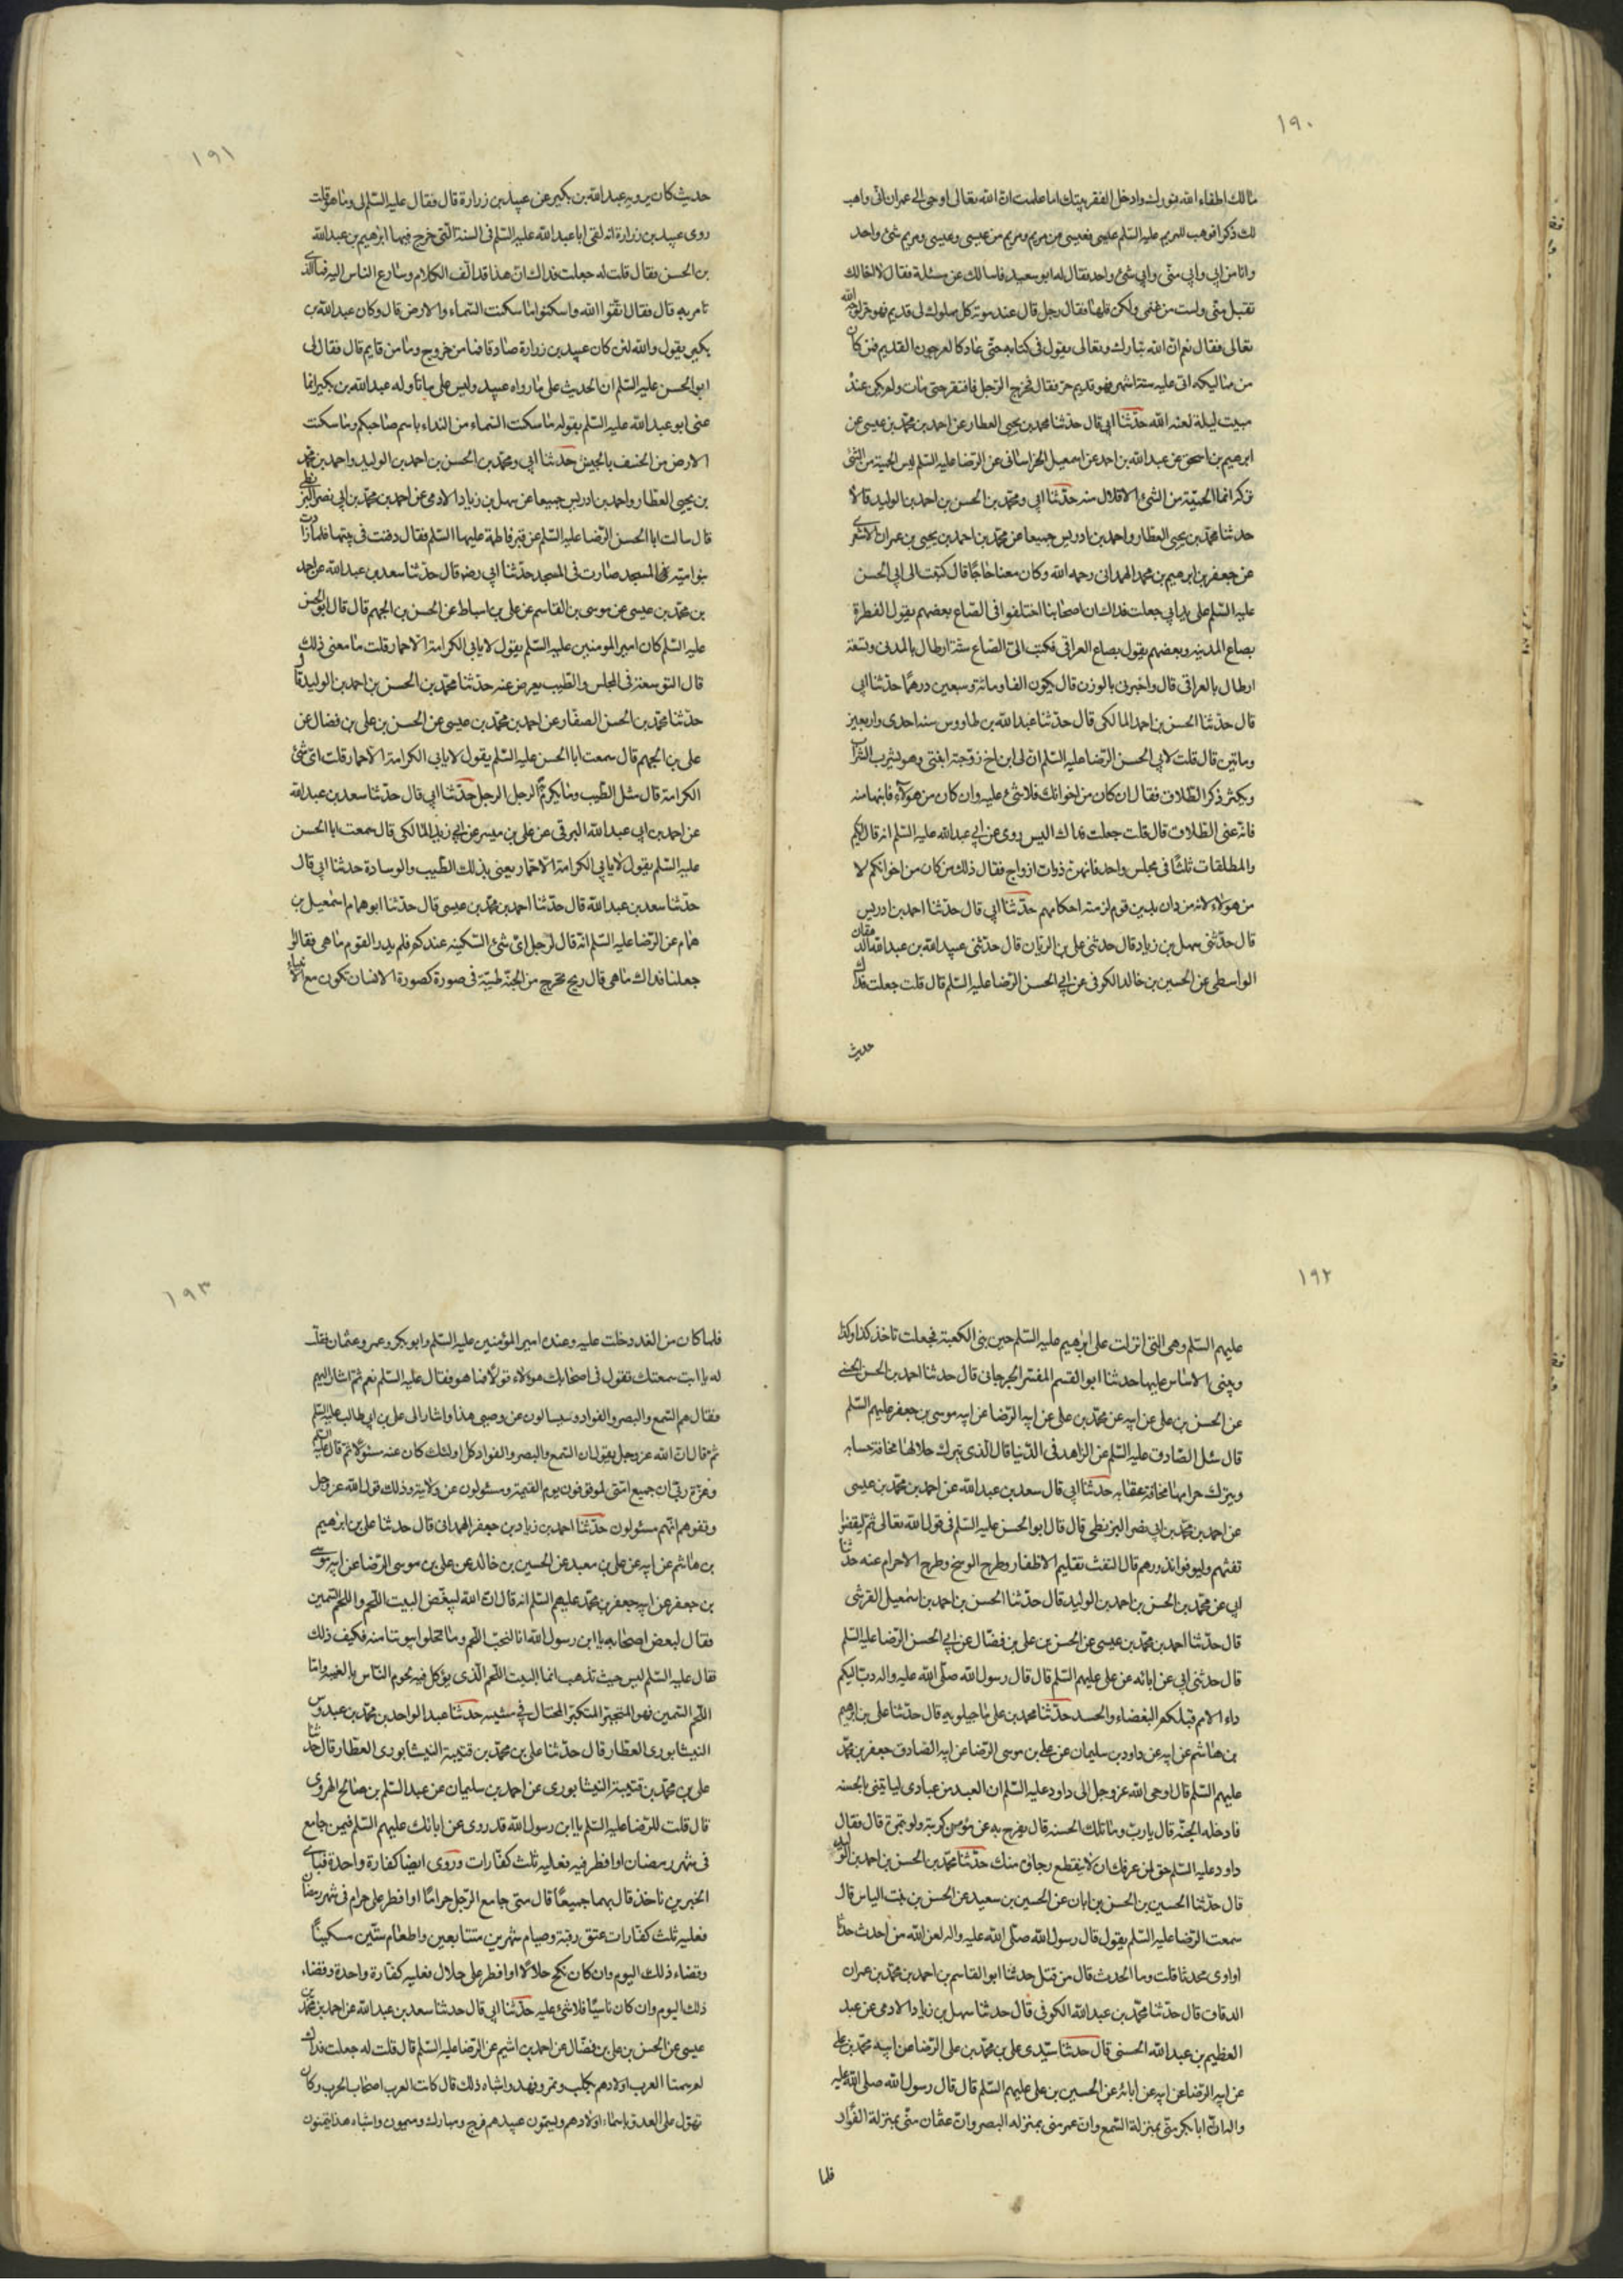 ١٩٠
مالك اطفاء الله نورك وادخل الفقر بيتك اما علمت ان الله تعالى اوحى الى عمران انى واهب
لك ذكرا فوهب له مريم عليه السلم عيسى فعيسى من مريم ومريم من عيسى وعيسى ومريم شئ واحد
وانا من ابي وابي منى وابي شئ واحد فقال له ابو سعيد فاسالك عن مسئلة فقال لا اخالك
تقبل منى ولست من غنمى ولكن هلمها فقال رجل قال عند موته كل مملوك لى قديم فهو حر لوجه الله
تعالى فقال نعم ان الله تبارك وتعالى يقول فى كتابه حتى عاد كالعرجون القديم فمن كان
من مماليكه اتى عليه ستة اشهر فهو قديم حر فقال فخرج الرجل فافتقر حتى مات ولم يكن عنده
مبيت ليلة لعنه الله حدثنا ابي قال حدثنا محمد بن يحيى العطار عن احمد بن محمد بن عيسى عن
ابرهيم بن اسحق عن عبد الله بن احمد عن اسمعيل الخراسانى عن الرضا عليه السلم ليس الحمية من الشئ
تركه انما الحمية من الشئ الاقلال منه حدثنا ابي ومحمد بن الحسن بن احمد بن الوليد قالا
حدثنا محمد بن يحيى العطار واحمد بن ادريس جميعا عن محمد بن احمد بن يحيى بن عمران الاشعرى
عن جعفر بن ابرهيم بن محمد الهمدانى رحمه الله وكان معنا حاجا قال كتبت الى ابي الحسن
عليه السلم على يد ابي جعلت فداك ان اصحابنا اختلفوا فى الصاع بعضهم يقول الفطرة
بصاع المدينه وبعضهم يقول بصاع العراقى فكتب الى الصاع ستة ارطال بالمدنى وتسعة
ارطال بالعراقى قال واخبرنى بالوزن قال يكون الفا ومائة وسبعين درهما حدثنا ابي
قال حدثنا الحسن بن احمد المالكى قال حدثنا عبد الله بن طاووس سنه احدى واربعين
وماتين قال قلت لابي الحسن الرضا عليه السلم ان لى ابن اخ زوجته ابنتى وهو يشرب الشراب
ويكثر ذكر الطلاق فقال ان كان من اخوانك فلا شئ عليه وان كان من هؤلآء فابنها منه
فانه عنى الطلاق قال قلت جعلت فداك اليس روى عن ابي عبد الله عليه السلم انه قال اياكم
والمطلقات ثلثا فى مجلس واحد فانهن ذوات ازواج فقال ذلك من كان من اخوانكم لا
من هؤلاء لانه من دان بدين قوم لزمته احكامهم حدثنا ابي قال حدثنا احمد بن ادريس
قال حدثنى سهل بن زياد قال حدثنى على بن الريان قال حدثنى عبيد الله بن عبد الله الدهقان
الواسطى عن الحسين بن خالد الكوفى عن ابي الحسن الرضا عليه السلم قال قلت جعلت فداك
حديث
١٩١
حديث كان يرويه عبد الله بن بكير عن عبيد بن زرارة قال فقال عليه السلم لى وما هو قلت
روى عبيد بن زرارة انه لقى ابا عبد الله عليه السلم فى السنة التى خرج فيها ابرهيم بن عبد الله
بن الحسن فقال قلت له جعلت فداك ان هذا قد الف الكلام وسارع الناس اليه فما الذى
تامر به قال فقال اتقوا الله واسكنوا ما سكنت السماء والارض قال وكان عبد الله بن
بكير يقول والله لئن كان عبيد بن زرارة صادقا فما من خروج وما من قايم قال فقال لى
ابو الحسن عليه السلم ان الحديث على ما رواه عبيد وليس على ما تاوله عبد الله بن بكير انما
عنى ابو عبد الله عليه السلم بقوله ما سكنت السماء من النداء باسم صاحبكم وما سكنت
الارض من الخسف بالجيش حدثنا ابي ومحمد بن الحسن بن احمد بن الوليد واحمد بن محمد
بن يحيى العطار واحمد بن ادريس جميعا عن سهل بن زياد الادمى عن احمد بن محمد بن ابي نصر البزنطى
قال سالت ابا الحسن الرضا عليه السلم عن قبر فاطمة عليها السلم فقال دفنت فى بيتها فلما زادت
بنو امية فى المسجد صارت فى المسجد حدثنا ابي رضه قال حدثنا سعد بن عبد الله عن احمد
بن محمد بن عيسى عن موسى بن القاسم عن على بن اسباط عن الحسن بن الجهم قال قال ابو الحسن
عليه السلم كان امير المومنين عليه السلم يقول لا يابى الكرامة الا حمار قلت ما معنى ذلك
قال التوسعة فى المجلس والطيب يعرض عنه حدثنا محمد بن الحسن بن احمد بن الوليد قال
حدثنا محمد بن الحسن الصفار عن احمد بن محمد بن عيسى عن الحسن بن على بن فضال عن
على بن الجهم قال سمعت ابا الحسن عليه السلم يقول لا يابى الكرامة الا حمار قلت اى شئ
الكرامة قال مثل الطيب وما يكرم الرجل الرجل حدثنا ابي قال حدثنا سعد بن عبد الله
عن احمد بن ابي عبد الله البرقى عن على بن ميسر عن ابي زيد المالكى قال سمعت ابا الحسن
عليه السلم يقول لا يابى الكرامة الا حمار يعنى بذلك الطيب والوسادة حدثنا ابي قال
حدثنا سعد بن عبد الله قال حدثنا احمد بن محمد بن عيسى قال حدثنا ابو همام اسمعيل بن
همام عن الرضا عليه السلم انه قال لرجل اى شئ السكينه عندكم فلم يدر القوم ما هى فقالوا
جعلنا فداك ما هى قال ريح تخرج من الجنة طيبة فى صورة كصورة الانسان تكون مع الانبياء
١٩٢
عليهم السلم وهى التى انزلت على ابرهيم عليه السلم حين بنى الكعبة فجعلت تاخذ كذا وكذا
ويبنى الاساس عليها حدثنا ابو القسم المفسر الجرجانى قال حدثنا احمد بن الحسن الحسنى
عن الحسن بن على عن ابيه عن محمد بن على عن ابيه الرضا عن ابيه موسى بن جعفر عليهم السلم
قال سئل الصادق عليه السلم عن الزاهد فى الدنيا قال الذى يترك حلالها مخافة حسابه
ويترك حرامها مخافة عقابه حدثنا ابي قال سعد بن عبد الله عن احمد بن محمد بن عيسى
عن احمد بن محمد بن ابي نصر البزنطى قال قال ابو الحسن عليه السلم فى قول الله تعالى ثم ليقضوا
تفثهم وليوفوا نذورهم قال التفث تقليم الاظفار وطرح الوسخ وطرح الاحرام عنه حدثنا
ابي عن محمد بن الحسن بن احمد بن الوليد قال حدثنا الحسن بن احمد بن اسمعيل القرشى
قال حدثنا احمد بن محمد بن عيسى عن الحسن بن على بن فضال عن ابي الحسن الرضا عليه السلم
قال حدثنى ابي عن ابائه عن على عليهم السلم قال قال رسول الله صلى الله عليه واله دب اليكم
داء الامم قبلكم البغضاء والحسد حدثنا محمد بن على ماجيلويه قال حدثنا على بن ابرهيم
بن هاشم عن ابيه عن داود بن سليمان عن على بن موسى الرضا عن ابيه الصادق جعفر بن محمد
عليهم السلم قال اوحى الله عز وجل الى داود عليه السلم ان العبد من عبادى لياتينى بالحسنه
فادخله الجنة قال يارب وما تلك الحسنه قال يفرج به عن مؤمن كربة ولو بتمرة قال فقال
داود عليه السلم حق لمن عرفك ان لا ينقطع رجاؤه منك حدثنا محمد بن الحسن بن احمد بن الوليد
قال حدثنا الحسين بن الحسن بن ابان عن الحسين بن سعيد عن الحسن بن بنت الياس قال
سمعت الرضا عليه السلم يقول قال رسول الله صلى الله عليه واله لعن الله من احدث حدثا
او اوى محدثا قلت وما الحدث قال من قتل حدثنا ابو القاسم بن احمد بن محمد بن عمران
الدقاق قال حدثنا محمد بن عبد الله الكوفى قال حدثنا سهل بن زياد الادمى عن عبد
العظيم بن عبد الله الحسنى قال حدثنا سيدى على بن محمد بن على الرضا عن ابيه محمد بن على
عن ابيه الرضا عن ابيه عن ابائه عن الحسين بن على عليهم السلم قال قال رسول الله صلى الله عليه
واله ان ابا بكر منى بمنزلة السمع وان عمر منى بمنزله البصر وان عثمان منى بمنزلة الفؤاد
فلما
١٩٣
فلما كان من الغد دخلت عليه وعنده امير المؤمنين عليه السلم وابو بكر وعمر وعثمان فقلت
له يا ابت سمعتك تقول فى اصحابك هؤلاء قولا فما هو فقال عليه السلم نعم ثم اشار اليهم
فقال هم السمع والبصر والفواد وسيسالون عن وصيى هذا واشار الى على بن ابي طالب عليه السلم
ثم قال ان الله عز وجل يقول ان السمع والبصر والفواد كل اولئك كان عنه مسئولا ثم قال عليه السلم
وعزة ربى ان جميع امتى لموقوفون يوم القيمة ومسئولون عن ولايته وذلك قول الله عز وجل
وقفوهم انهم مسئولون حدثنا احمد بن زياد بن جعفر الهمدانى قال حدثنا على بن ابرهيم
بن هاشم عن ابيه عن على بن معبد عن الحسين بن خالد عن على بن موسى الرضا عن ابيه موسى
بن جعفر عن ابيه جعفر بن محمد عليهم السلم انه قال ان الله ليبغض البيت اللحم واللحم السمين
فقال لبعض اصحابه يا ابن رسول الله انا لنحب اللحم وما تخلوا بيوتنا منه فكيف ذلك
فقال عليه السلم ليس حيث تذهب انما البيت اللحم الذى يؤكل فيه لحوم الناس بالغيبه واما
اللحم السمين فهو المتجبر المتكبر المختال فى مشيته حدثنا عبد الواحد بن محمد بن عبدوس
النيشابورى العطار قال حدثنا على بن محمد بن قتيبة النيشابورى العطار قال حدثنا
على بن محمد بن قتيبة النيشابورى عن احمد بن سليمان عن عبد السلم بن صالح الهروى
قال قلت للرضا عليه السلم يا ابن رسول الله قد روى عن ابائك عليهم السلم فيمن جامع
فى شهر رمضان او افطر فيه فعليه ثلث كفارات وروى ايضا كفارة واحدة فباى
الخبرين ناخذ قال بهما جميعا قال متى جامع الرجل حراما او افطر على حرام فى شهر رمضان
فعليه ثلث كفارات عتق رقبة وصيام شهرين متتابعين واطعام ستين مسكينا
وقضاء ذلك اليوم وان كان نكح حلالا او افطر على حلال فعليه كفارة واحدة وقضاء
ذلك اليوم وان كان ناسيا فلا شئ عليه حدثنا ابي قال حدثنا سعد بن عبد الله عن احمد بن محمد بن
عيسى عن الحسن بن على بن فضال عن احمد بن اشيم عن الرضا عليه السلم قال قلت له جعلت فداك
لم سمتا العرب اولادهم بكلب ونمر وفهد واشباه ذلك قال كانت العرب اصحاب الحرب وكان
تهول على العدو باسماء اولادهم ويسمون عبيدهم فرج ومبارك وميمون واشباه هذا يتمنون